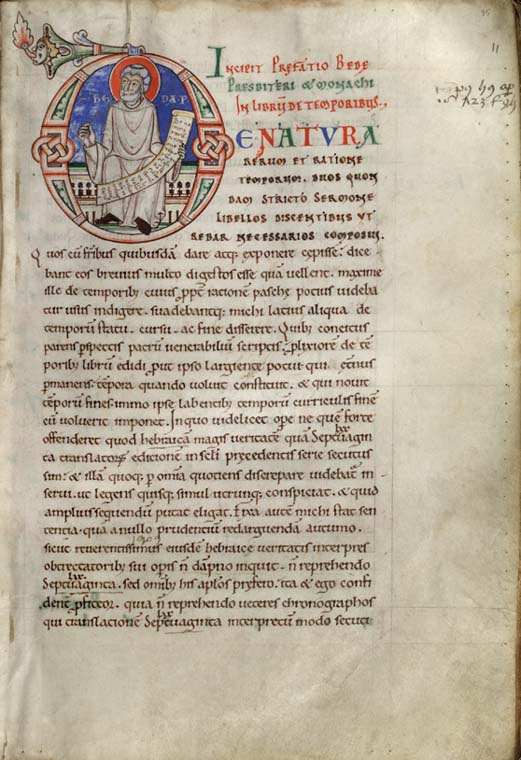 Incipit Prefatio Bede
Presbiteri & monachi
In librū de temporibus.
De NATURA
RERUM ET RATIONE
TEMPORUM. DUOS QUON
DAM STRICTO SERMONE
LIBELLOS DISCENTIBUS UT
REBAR NECESSARIOS COMPOSUI.
Quos cū fr̄ibus quibusdā dare atq; exponere cepissē. dice
bant eos breuius multo digestos esse quā uellent. maxime
ille de temporib; cuius ꝓpt̄ racionem pasche pocius uideba
tur usus indigere. suadebantq; michi lacius aliqua de
temporū statu. cursu. ac fine disserere. Quib; concitus
parens ꝑspectis patrū uenerabiliū scriptis. ꝓlixiorē de tē
porib; librū edidi. ꝓut ipso largiente potui. qui et̄nus
ꝑmanens. tēpora quando uoluit constituit. & qui nouit
tēporū fines. immo ipse labentib; temporū curriculis finē
cū uoluerit imponet. In quo uidelicet oꝑe ne quē forte
offenderet quod hebraicā magis ueritatē quā Septuagin
lxx
ta translatorꝫ editionē in sc̄li p̄cedentis serie secutus
sim. & illā quoq; ꝑ omīa quotiens discrepare uidebat̄ in
serui. ut legens quisq; simul utrunq; conspiciat. & quid
amplius sequendū putat eligat. Fixa autē michi stat sen
tentia. quā a nullo prudentiū redarguendā autumo.
sicut reuerentissimus eiusdē hebraice ueritatis interpres
obtrectatorib; sui opis n̄ dāpno inquit. n̄ reprehendo
lxx
Septuaginta. sed omib; his apl̄os p̄fero. ita & ego confi
dent̄ ꝓfiteor. quia n̄ reprehendo ueteres chronographos
lxx
qui translationē Septuaginta interpretū modo secuti